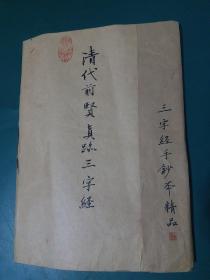 清代前贤真跡三字经
三字经手鈔本精品